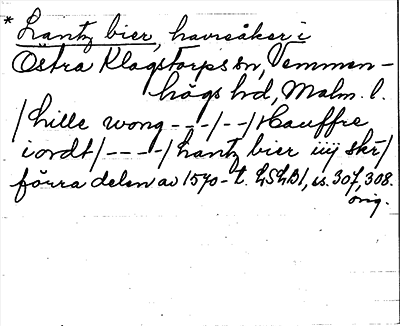 * Lantz bier, havreåker i
Östra Klagstorps sn, Vemmen-
högs hd, Malm. l.
/Lille wong - - -/- -/Hauffre
iordt/- - - -/Lantz bier iiij skr/
förra delen av 1570-t. LSLB1, s. 307, 308.
orig.